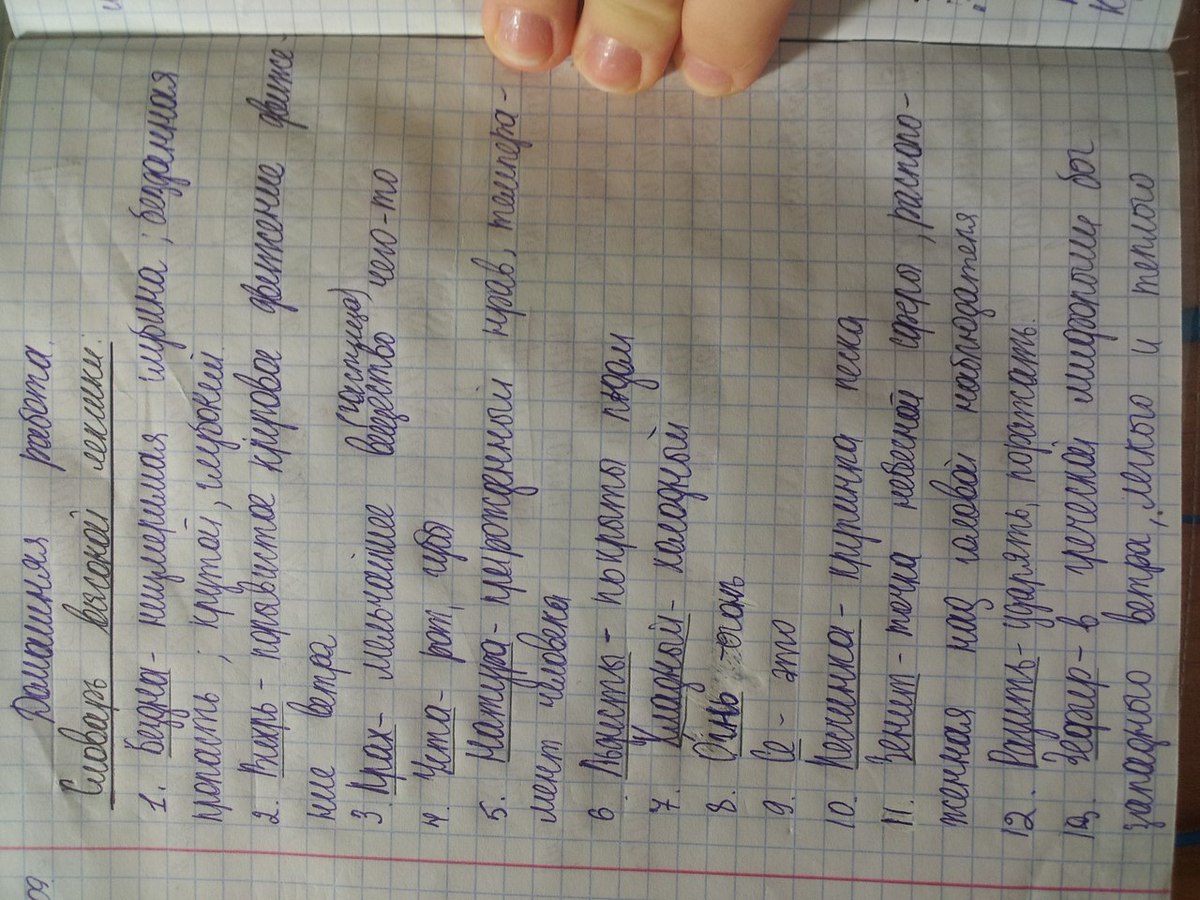 09
Домашняя работа.
Словарь высокой лексики.
1. Бездна - неизмеримая глубина ; бездонная
пропасть ; крутой, глубокий
2. Вихрь - порывистое круговое движение движе-
ние ветра
3. Прах - мельчайшее вещество (частица) чего-то
4. Уста - рот, губы
5. Натура - прирожденный нрав, темпера-
мент человека
6 Льдиты - покрыты льдом
7. Хладный - холодный
8. Огнь - огонь
9. Се - это
10. Песчинка - крупинка песка
11. Зенит - точка небесной сферы, располо-
женная над головой наблюдателя
12. Разить - ударять, поражать.
13. Зефир - в греческой мифологии бог
западного ветра, легкого и теплого